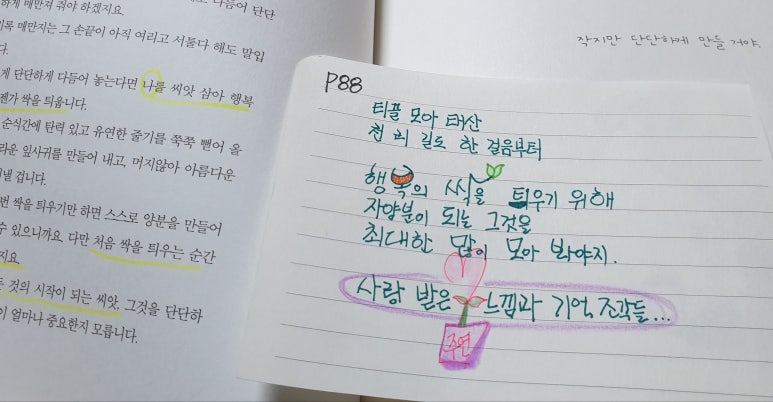 하게 매만져 줘야 하겠지요.
다듬어 단단
매만지는 그 손끝이 아직 여리고 서툴다 해도 말입
다.
게 단단하게 다듬어 놓는다면 나를 씨앗 삼아 행복
젠가 싹을 틔웁니다.
순식간에 탄력 있고 유연한 줄기를 쭉쭉 뻗어 올
라운 잎사귀를 만들어 내고, 머지않아 아름다운
낼 겁니다.
번 싹을 틔우기만 하면 스스로 양분을 만들어
수 있으니까요. 다만 처음 싹을 틔우는 순간
지요.
것의 시작이 되는 씨앗, 그것을 단단하
이 얼마나 중요한지 모릅니다.
작지만 단단하게 만들 거야.
P88
티끌 모아 태산
천 리 길도 한 걸음부터
행복의 씩을 틔우기 위해
자양분이 되는 그것을
최대한 많이 모아 봐야지.
사랑 받은 느낌과 기억 조각들...
주연